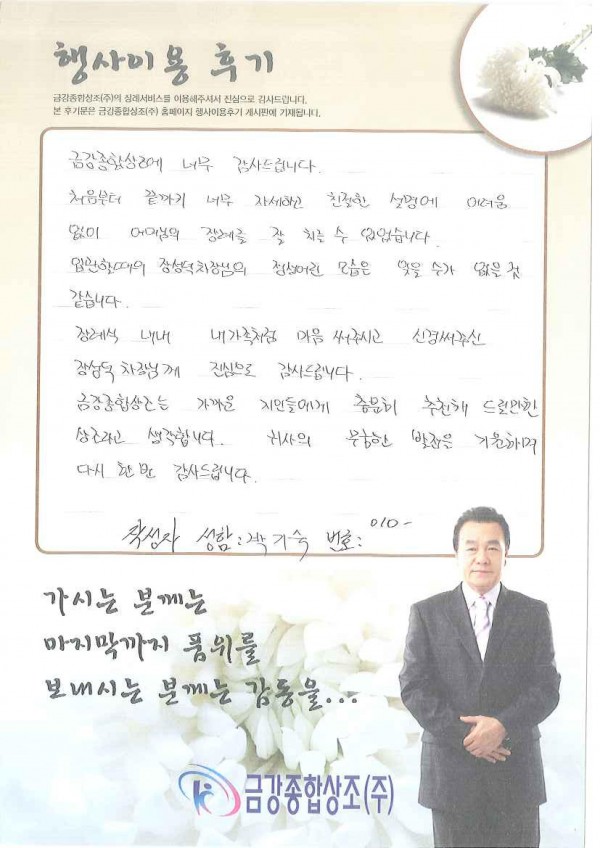 행사이용 후기
금강종합상조(주)의 장례서비스를 이용해주셔서 진심으로 감사드립니다.
본 후기문은 금강종합상조(주) 홈페이지 행사이용후기 게시판에 기재됩니다.
금강종합상조에 너무 감사드립니다.
처음부터 끝까지 너무 자세하고 친절한 설명에 어려움
없이 어머님의 장례를 잘 치를 수 있었습니다
입관할때의 장성덕차장님의 정성어린 모습은 잊을 수가 없을 것
같습니다.
장례식 내내 내가족처럼 마음 써주시고 신경써주신
장성덕 차장님께 진심으로 감사드립니다.
금강종합상조는 가까운 지인들에게 충분히 추천해 드릴만한
상조라고 생각합니다. 귀사의 무궁한 발전은 기원하며
다시 한번 감사드립니다.
작성자 성함: 박기숙 번호: 010-
가시는 분께는
마지막까지 품위를
보내시는 분께는 감동을...
금강종합상조(주)